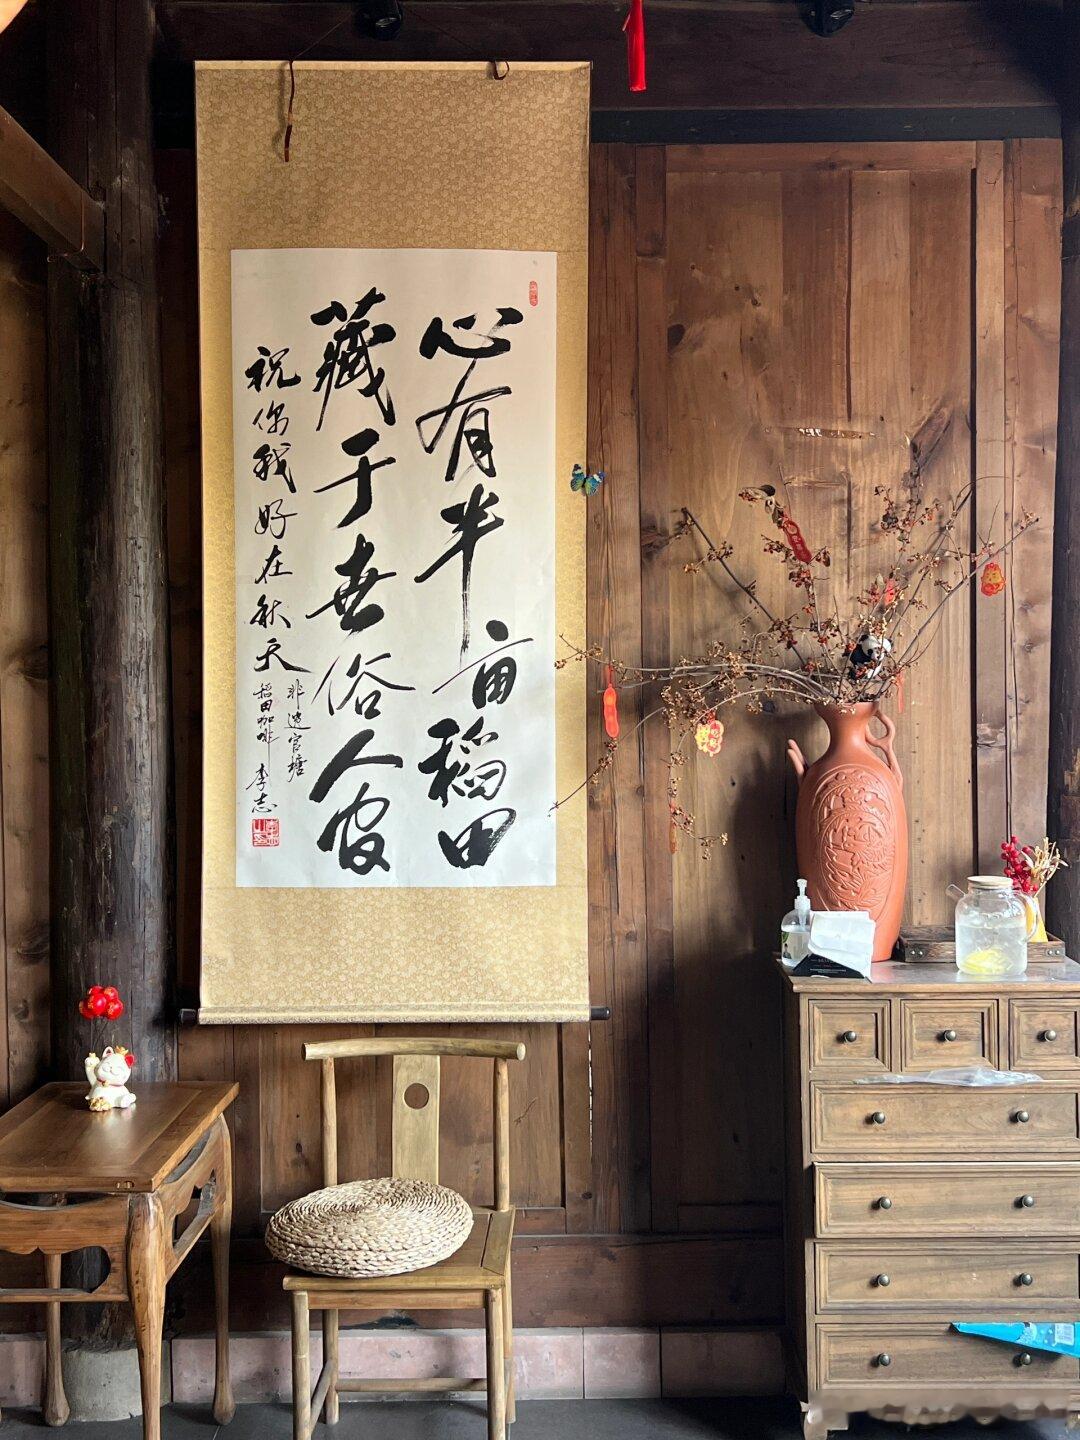 心有半亩稻田
藏于世俗人家
祝你我好在秋天
非遗官塘
稻田咖啡 李志